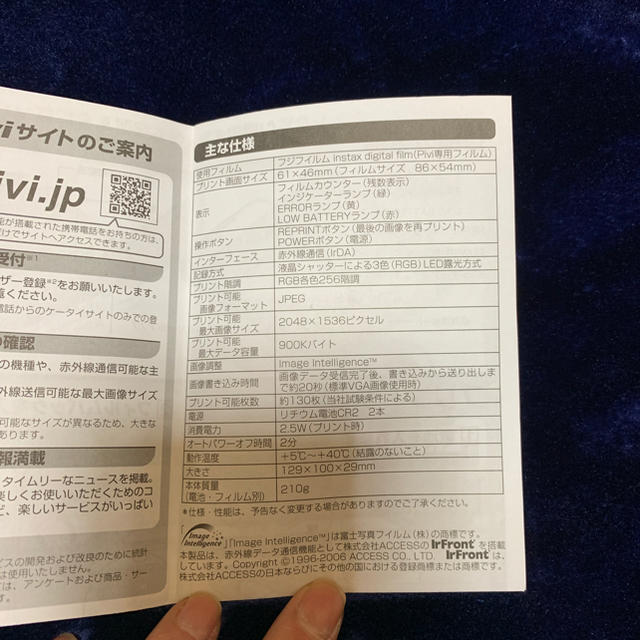 viサイトのご案内
ivi.jp
能が搭載された携帯電話をお持ちの方は、
だけでサイトへアクセスできます。
受付※1
ザー登録※2をお願いいたします。
覧ください。
電話からのケータイサイトのみでの登
の確認
の機種や、赤外線通信可能な主
外線送信可能な最大画像サイズ
可能なサイズが異なるため、大きな
あります。
報満載
タイムリーなニュースを掲載。
楽しくお使いいただくためのコ
ど、楽しいサービスがいっぱい
ビスの開発および改良のために統計
は使用いたしません。
ては、アンケートおよび商品・サー
す。
主な仕様
使用フィルム フジフイルム instax digital film(Pivi専用フィルム)
プリント画面サイズ 61×46mm(フィルムサイズ 86×54mm)
表示 フィルムカウンター(残数表示)
インジケーターランプ(緑)
ERRORランプ(黄)
LOW BATTERYランプ(赤)
操作ボタン REPRINTボタン(最後の画像を再プリント)
POWERボタン(電源)
インターフェース 赤外線通信(IrDA)
記録方式 液晶シャッターによる3色(RGB)LED露光方式
プリント階調 RGB各色256階調
プリント可能
画像フォーマット JPEG
プリント可能
最大画像サイズ 2048×1536ピクセル
プリント可能
最大データ容量 900Kバイト
画像調整 Image Intelligence™
画像書き込み時間 画像データ受信完了後、書き込みから送り出しま
で約20秒(標準VGA画像使用時)
プリント可能枚数 約130枚(当社試験条件による)
電源 リチウム電池CR2 2本
消費電力 2.5W(プリント時)
オートパワーオフ時間 2分
動作温度 +5℃～+40℃(結露のないこと)
大きさ 129×100×29mm
本体質量
(電池・フィルム別) 210g
*仕様・性能は、予告なく変更する場合がありますのでご了承ください。
Image Intelligence™」「Image Intelligence™」は富士写真フイルム(株)の商標です。
本製品は、赤外線データ通信機能として株式会社ACCESSのIrFrontを搭載
しています。Copyright ©1996-2006 ACCESS CO., LTD. IrFrontは、
株式会社ACCESSの日本ならびにその他の国における登録商標または商標です。